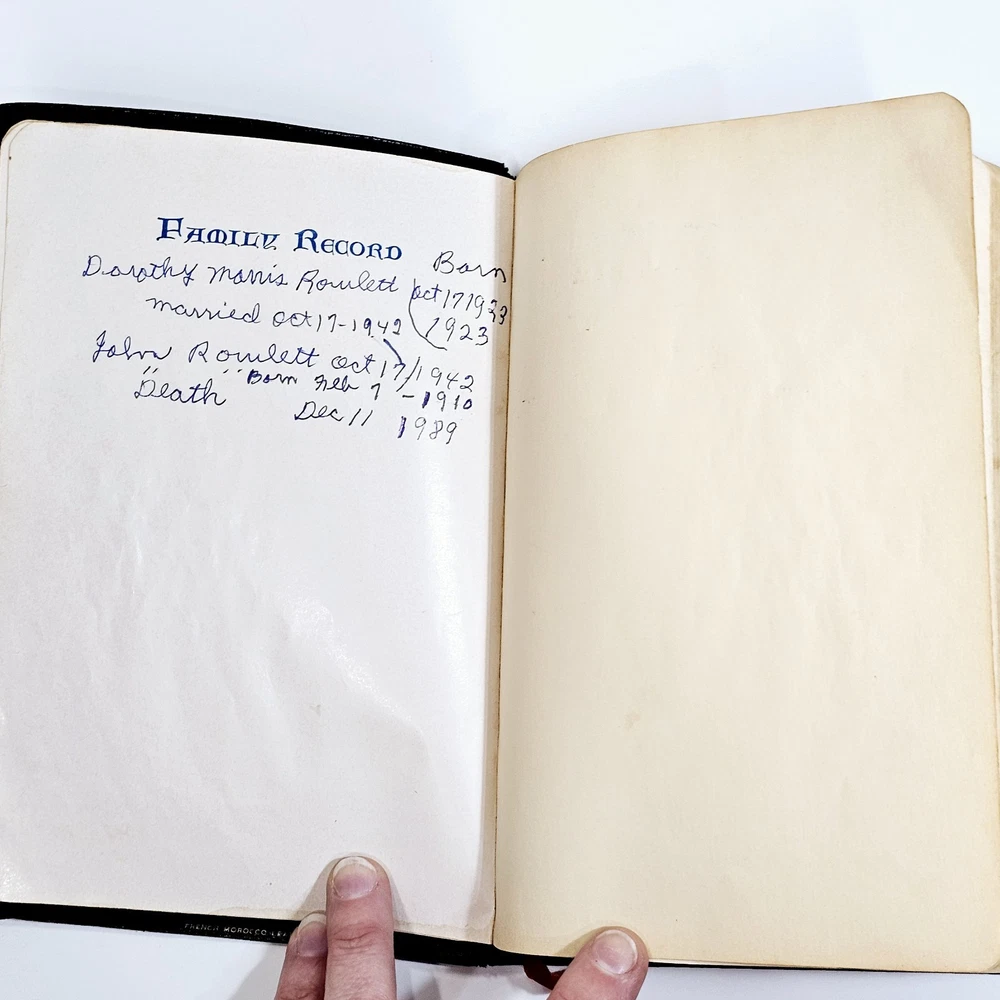 FAMILY RECORD
Born
Dorothy Morris Rowlett oct 17 1923
married oct 17-1942 1923
John Rowlett oct 17/1942
" " Born Feb 7 -1910
Death Dec 11 1989
FRENCH MOROCCO